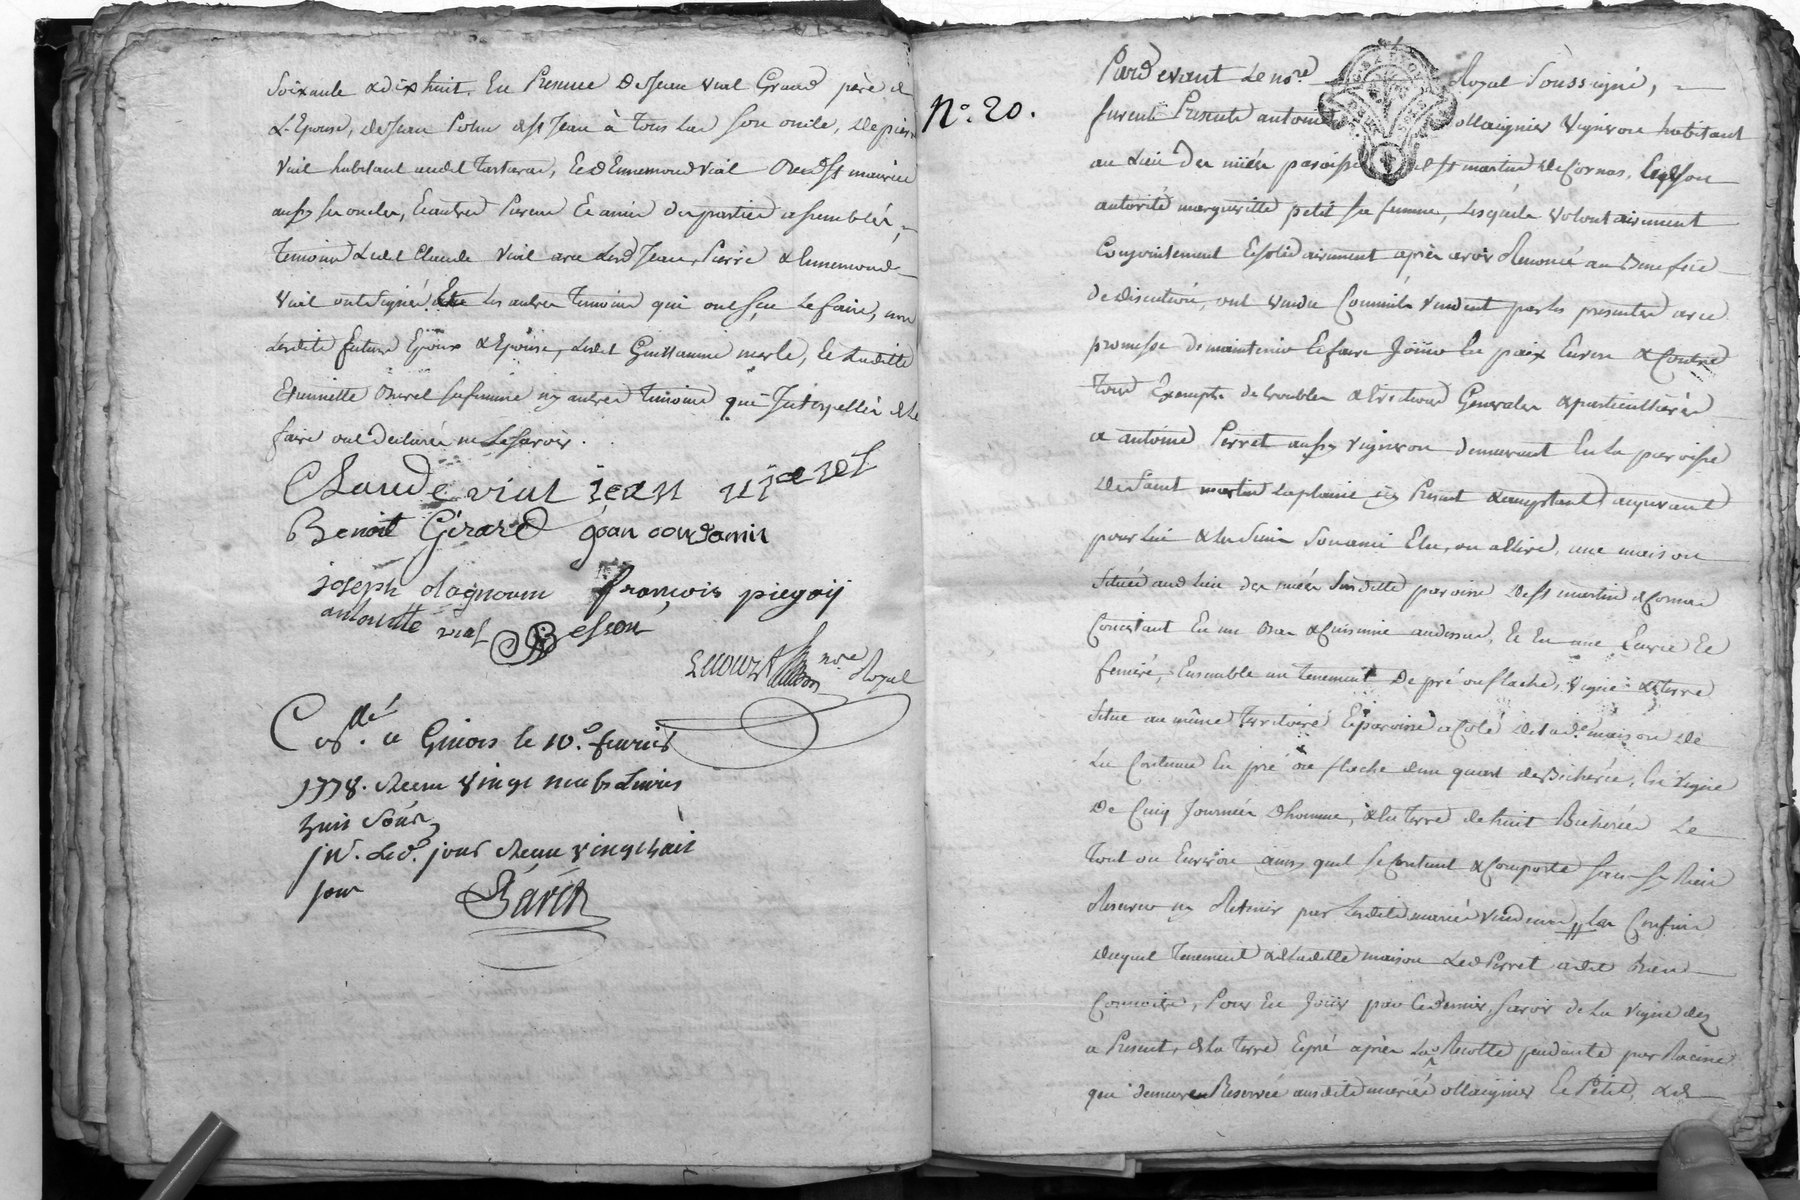 soixante & dix huit, En Presence De Jean vial Grand père de
L'Epouse, de Jean
vial habitant audit Tartaras, & d'Ennemond vial De St maurice
aussy ses oncles, & autres Parens & amis des parties assemblés,
Temoins Ledit Claude vial avec Lesd Jean, Pierre & Ennemond
vial ont signé Les autres Temoins qui ont sçu Le faire, non
Lesdits futurs Epoux & Epouse, Ledit Guillaume merle, & Ladite
Etiennette sa femme ny autres Temoins qui Interpellés de Le
faire ont declarés ne Le savoir.
Claude vial jean
Benoit Gérard jean
joseph françois piegay
antoinette vial
nre Royal
Collé. a Givors le 10.e fevrier
1778. Recu vingt neufs Livres
huit Sous
jn. Led. jour Recu vingt huit
sous
N.o 20.
Pardevant Le nore Royal Soussigné,
furent Presents antoine ollaignier vigneron habitant
au Lieu Des muées paroisse de St martin de Cornas, & de son
autorité margueritte petit sa femme, Lesquels volontairement
Conjointement & solidairement après avoir Renoncé au Benefice
de discution, ont vendu Comme ils vendent par les presentes avec
promesse de maintenir & faire Jouir En paix Envers & Contre
Tous Exempts de troubles & Evictions Generales & particulliéres
a antoine Perret aussy vigneron demeurant En La paroisse
De Saint martin Laplaine icy Present & acceptant acquerant
pour Lui & Les Siens Son ami Elu, ou a Elire, une maison
Située aud Lieu des muées Susditte paroisse de St martin de Cornas
Consistant En un Bas & Cuisine audessus, & En une Ecurie &
feniére, Ensemble un Tenement De pré ou flache, vigne & Terre
Situé au même Territoire & paroisse a Coté de Lad.e maison De
La Contenue En pré ou flache d'un quart de Bicherée, En vigne
De Cinq Journées d'homme, & La Terre de huit Bicherées Le
Tout ou Environ ainsy quil se Contient & Comporte sans sy Rien
Reserver ny Retenir par Lesdits mariés vendeurs // Les Confins
duquel Tenement & de Laditte maison Led Perret a dit Bien
Connoitre, Pour En Jouir par Ce dernier, savoir de La vigne dez
a Present, & La Terre & pré après La Recolte pendante par Racine
qui demeure Reservée ausdits mariés ollaignier & Petit, & de